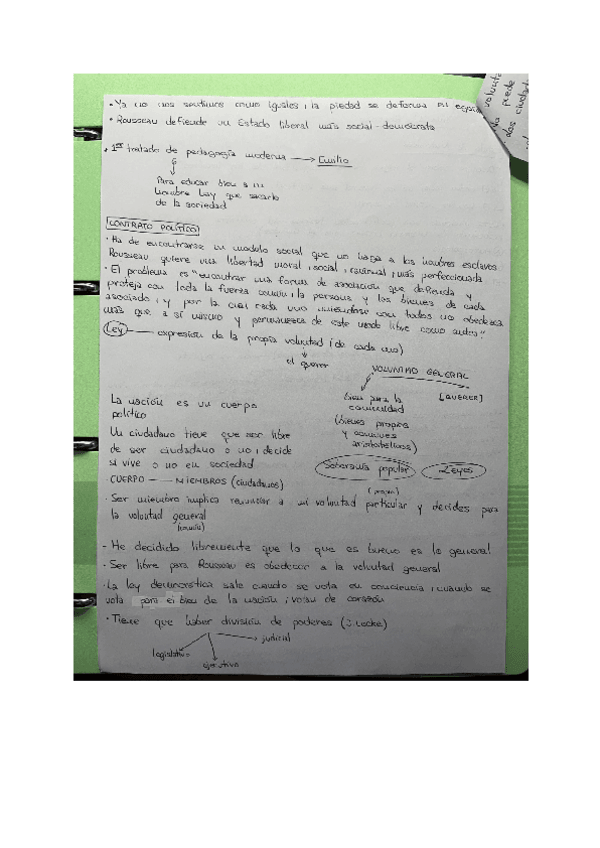 • Ya no nos sentimos como iguales, la piedad se deforma en
• Rousseau defiende un Estado liberal más social-demócrata
• 1er tratado de pedagogía moderna → Emilio
Para educar bien a un
hombre hay que sacarlo
de la sociedad
CONTRATO POLÍTICO
• Ha de encontrarse un modelo social que no haga a los hombres esclavos
Rousseau quiere una libertad moral, social, racional, más perfeccionada
• El problema es "encontrar una forma de asociación que defienda y
proteja con toda la fuerza común, la persona y los bienes de cada
asociado, y por la cual cada uno uniéndose con todos no obedezca
más que a sí mismo y permanezca de este modo libre como antes".
Ley — expresión de la propia voluntad (de cada uno)
el querer
VOLUNTAD GENERAL
bien para la
comunidad
[QUERER]
(bienes propios
y comunes
aristotélicos)
Soberanía popular
Leyes
La nación es un cuerpo
político
Un ciudadano tiene que ser libre
de ser ciudadano o no, decide
si vive o no en sociedad
CUERPO — MIEMBROS (ciudadanos)
• Ser miembro implica renunciar a mi voluntad particular y decides para
la voluntad general
- He decidido libremente que lo que es bueno es lo general
- Ser libre para Rousseau es obedecer a la voluntad general
• La ley democrática sale cuando se vota en conciencia, cuando se
vota para el bien de la nación, votar de corazón
• Tiene que haber división de poderes (J. Locke)
legislativo
ejecutivo
judicial
voluntad
puede